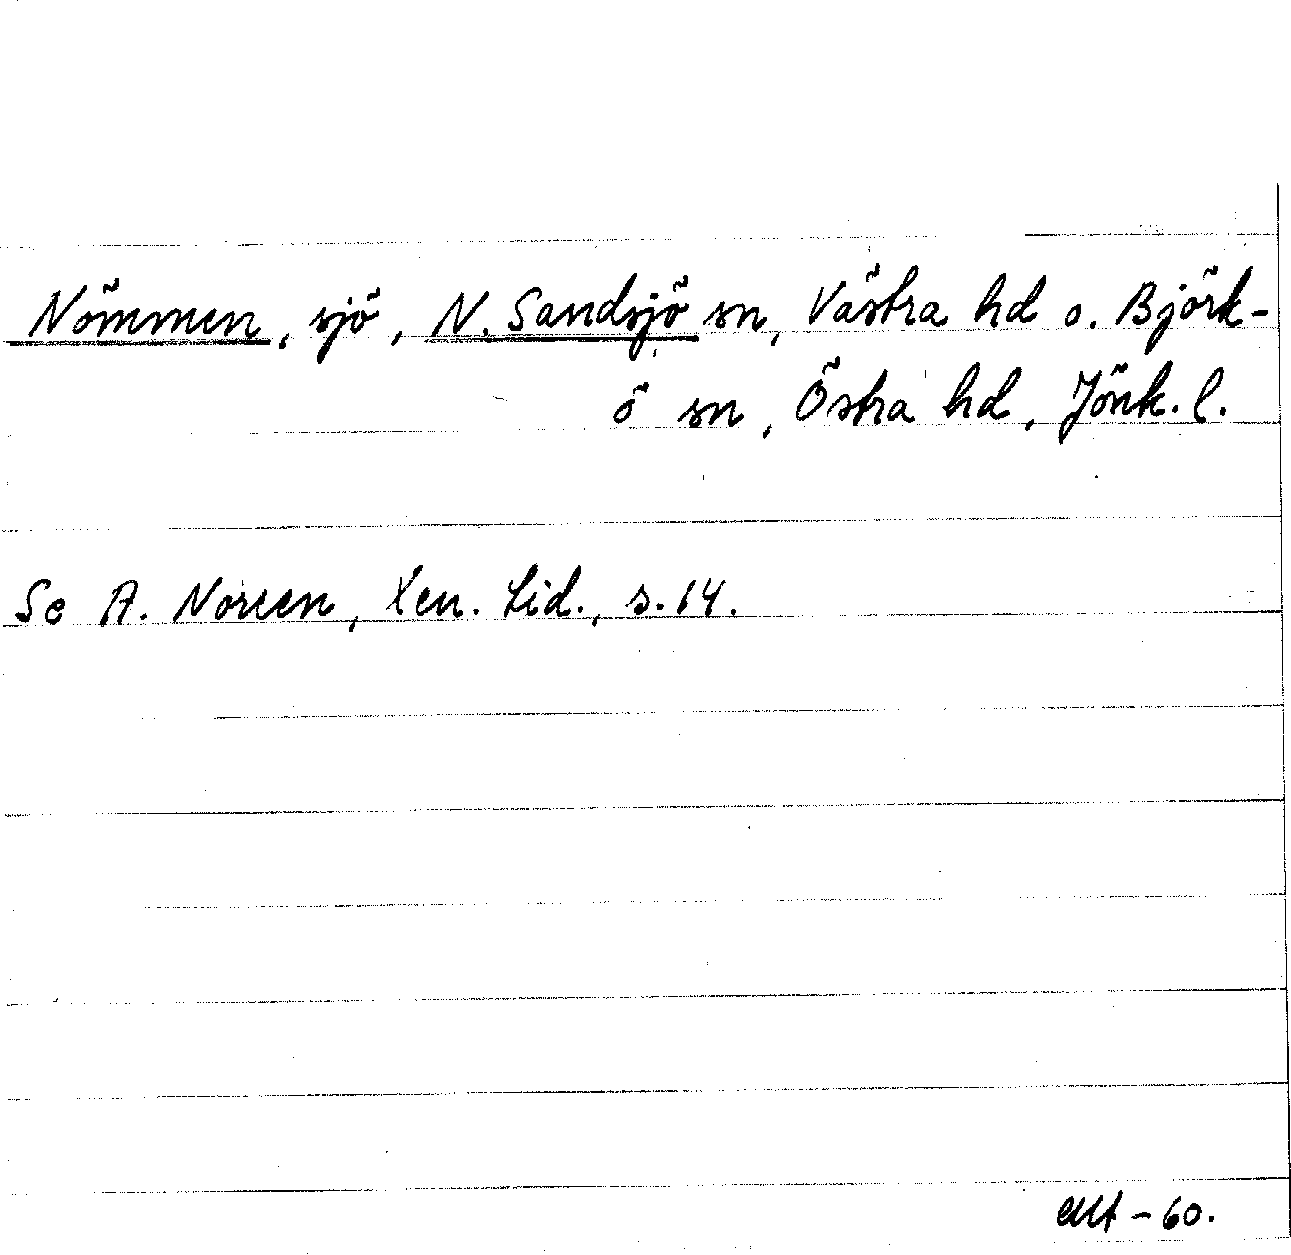 Nömmen, sjö, N. Sandsjö sn, Västra hd o. Björk-
ö sn, Östra hd, Jönk. l.
Se A. Noreen, Xen. Lid., s. 14.
-60.